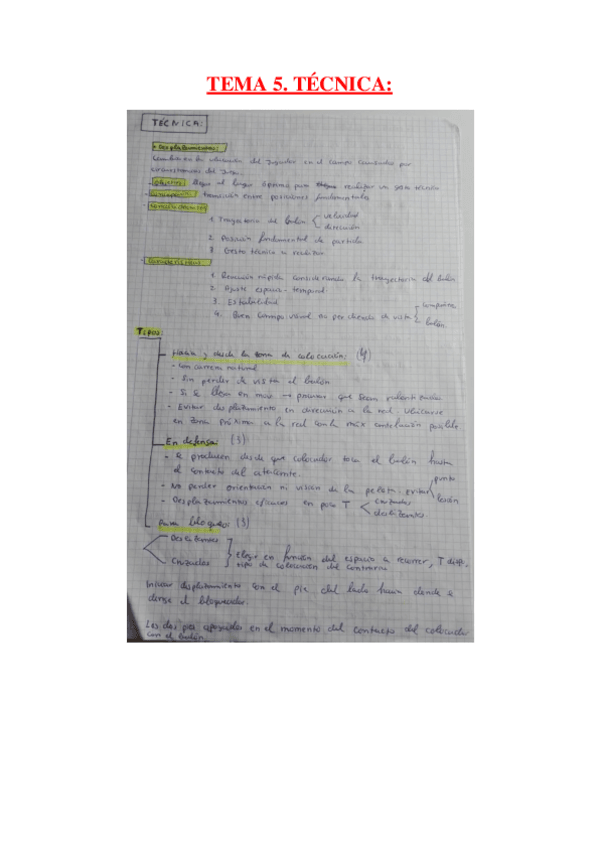 TEMA 5. TÉCNICA:
TÉCNICA:
• Desplazamientos:
Cambio en la ubicación del jugador en el campo cambiados por
circunstancias del juego.
- Objetivo: llegar al lugar óptimo para realizar un gesto técnico
transición entre posiciones fundamentales
1. Trayectoria del balón velocidad
dirección
2. Posición fundamental de partida
3. Gesto técnico a realizar
- Características:
1. Reacción rápida considerando la trayectoria del balón
2. Ajuste espacio-temporal
3. Estabilidad
4. Buen campo visual no perdiendo de vista
balón
TIPOS:
Hacia y desde la zona de colocación: (4)
- Con carrera natural
- Sin perder de vista el balón
- Si se llega en mov → procurar que sean
- Evitar desplazamiento en dirección a la red. Ubicarse
en zona próxima a la red con la más posible
En defensa: (3)
- Se producen desde que colocador toca el balón hasta
el contacto del atacante.
- No perder orientación ni visión de la pelota. Evitar punto
lesión
- Desplazamientos eficaces en poco T cruzados
deslizantes
Para bloqueo: (3)
Deslizantes
Cruzados
Elegir en función del espacio a recorrer, T disp,
tipo de colocación del contrario
Iniciar desplazamiento con el pie del lado hacia donde se
dirige el bloqueador.
Los dos pies apoyados en el momento del contacto del colocador
con el balón.